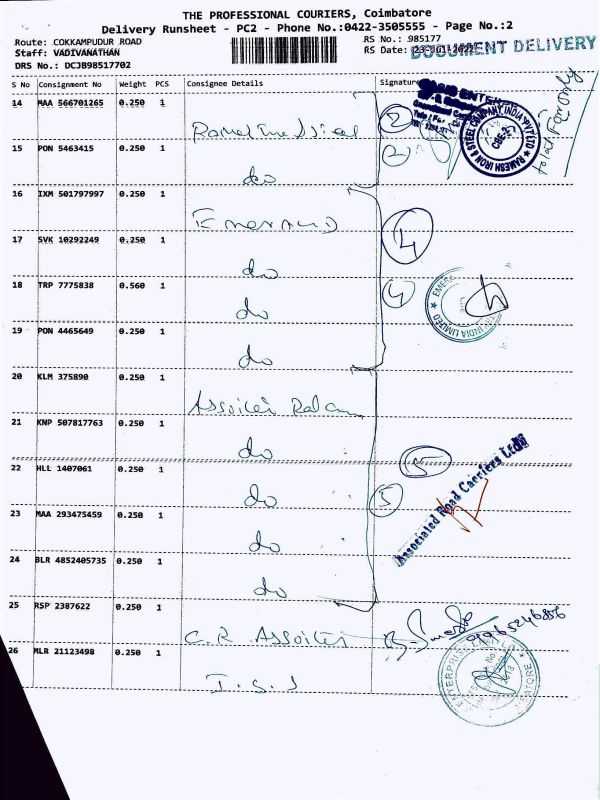 THE PROFESSIONAL COURIERS, Coimbatore
Delivery Runsheet - PC2 - Phone No.:0422-3505555 - Page No.:2
Route: COKKAMPUDUR ROAD
RS No.: 985177
Staff: VADIVANATHAN
RS Date:
DOCUMENT DELIVERY
DRS No.: DCJB98517702
S No Consignment No Weight PCS Consignee Details Signature
14 MAA 566701265 0.250 1
2
RAMESH IRON & STEEL COMPANY INDIA PVT LTD
15 PON 5463415 0.250 1 do
2
16 IXM 501797997 0.250 1
17 SVK 10292249 0.250 1 do
4
18 TRP 7775838 0.560 1 do
4
INDIA LIMITED
19 PON 4465649 0.250 1 do
20 KLM 375890 0.250 1
21 KNP 507817763 0.250 1 do
5
22 HLL 1407061 0.250 1 do
5
Associated Road Carriers Ltd
23 MAA 293475459 0.250 1 do
24 BLR 4852405735 0.250 1 do
25 RSP 2387622 0.250 1
26 MLR 21123498 0.250 1